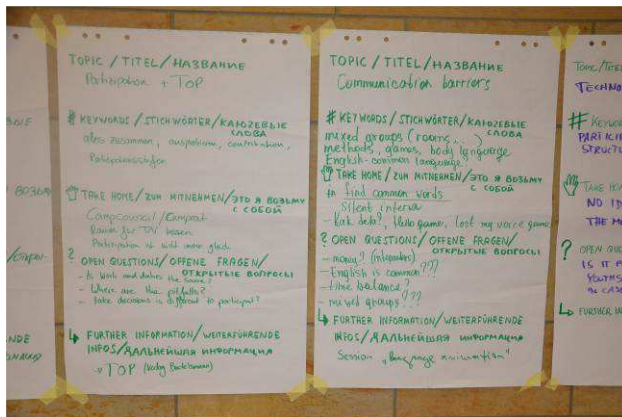 TOPIC / TITEL / НАЗВАНИЕ
Partizipation + TOP
# KEYWORDS / STICHWÖRTER / КЛЮЧЕВЫЕ
СЛОВА
alles zusammen, ausprobieren, contribution,
Partizipationsstufen
TAKE HOME / ZUM MITNEHMEN / ЭТО Я ВОЗЬМУ
С СОБОЙ
Campcouncil /
Raum für TN lassen
Partizipation ist nicht immer gleich
? OPEN QUESTIONS / OFFENE FRAGEN /
ОТКРЫТЫЕ ВОПРОСЫ
- Is work and the same?
- Where are the pitfalls?
- take decisions is different to participat?
FURTHER INFORMATION / WEITERFÜHRENDE
INFOS / ДАЛЬНЕЙШАЯ ИНФОРМАЦИЯ
→ TOP
TOPIC / TITEL / НАЗВАНИЕ
Communication barriers
# KEYWORDS / STICHWÖRTER / КЛЮЧЕВЫЕ
СЛОВА
mixed groups (rooms, ..)
methods, games, body language
English - common language?
TAKE HOME / ZUM MITNEHMEN / ЭТО Я ВОЗЬМУ
С СОБОЙ
to find common words
Silent
- Kak dela?, Hello game, lost my voice game
? OPEN QUESTIONS / OFFENE FRAGEN /
ОТКРЫТЫЕ ВОПРОСЫ
- money? (interpreters)
- English is common???
- time balance?
- mixed groups???
FURTHER INFORMATION / WEITERFÜHRENDE
INFOS / ДАЛЬНЕЙШАЯ ИНФОРМАЦИЯ
Session „Language animation"
TOPIC / TITE
TECHNO
# KEYWOR
PARTICI
STRUCTU
TAKE HO
NO ID
THE M
? OPEN QU
IS IT P
YOUTHS
IN CASE
FURTHER IN